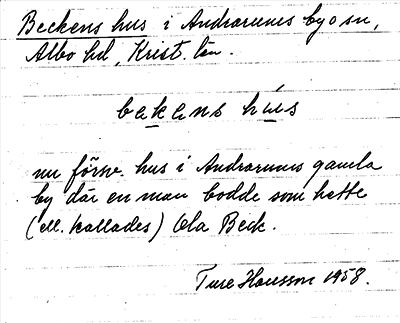 Beckens hus i Andrarums by o sn,
Albo hd, Krist. län.
bekans hús
nu försv. hus i Andrarums gamla
by där en man bodde som hette
(ell. kallades) Ola Beck.
Ture Hansson 1958.